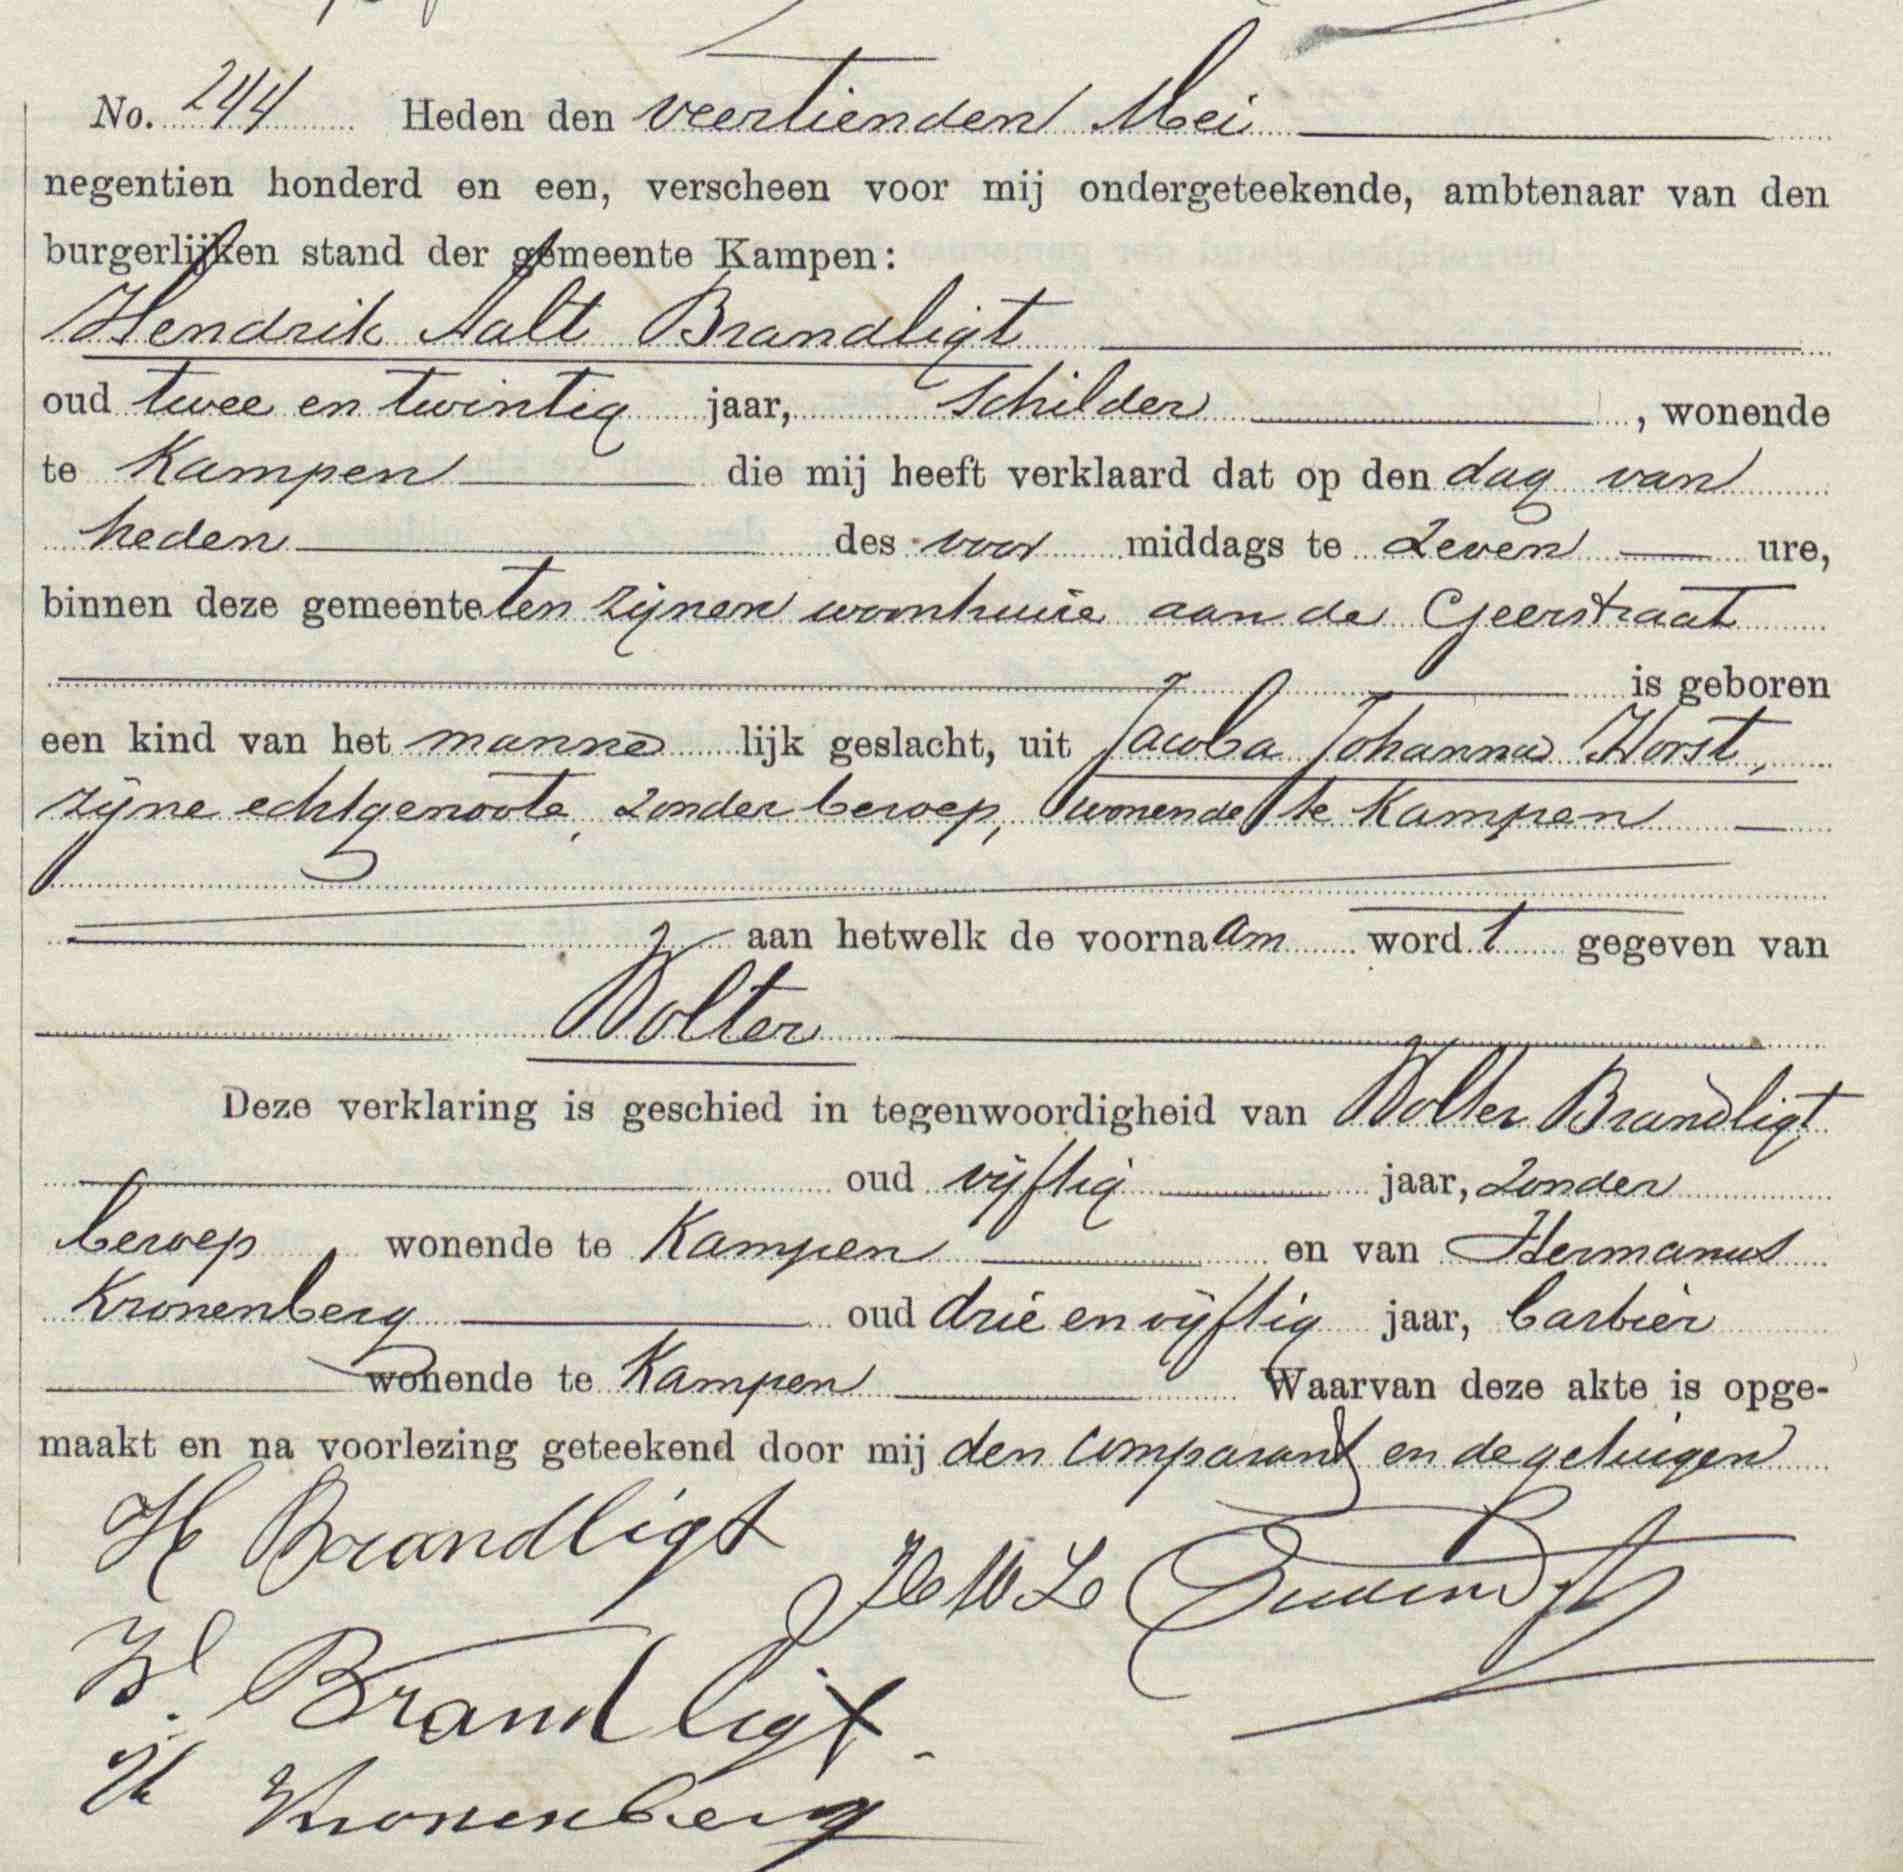 No. 244 Heden den veertienden Mei
negentien honderd en een, verscheen voor mij ondergeteekende, ambtenaar van den
burgerlijken stand der gemeente Kampen:
Hendrik Aalt Brandligt
oud twee en twintig jaar, schilder, wonende
te Kampen die mij heeft verklaard dat op den dag van
heden des voor middags te zeven ure,
binnen deze gemeente ten zijnen woonhuize aan de Geerstraat
is geboren
een kind van het mannelijk geslacht, uit Jacoba Johanna Horst,
zijne echtgenoote, zonder beroep, wonende te Kampen
aan hetwelk de voornaam wordt gegeven van
Wolter
Deze verklaring is geschied in tegenwoordigheid van Wolter Brandligt
oud vijftig jaar, zonder
beroep, wonende te Kampen en van Hermanus
Kronenberg oud drie en vijftig jaar, barbier
wonende te Kampen Waarvan deze akte is opge-
maakt en na voorlezing geteekend door mij den comparant en de getuigen
H Brandligt
W. Brandligt.
H Kronenberg